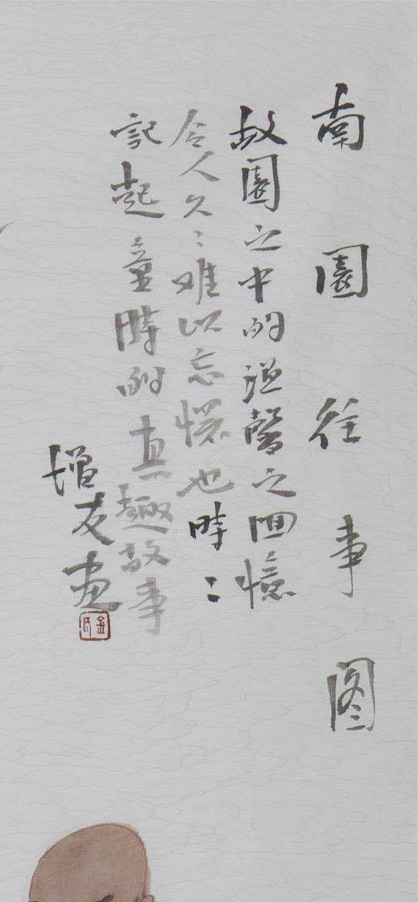 南園往事图
故園之中的馨之回憶
令人久〻難以忘懷也時〻
記起童時的真趣故事
增友畫
金氏